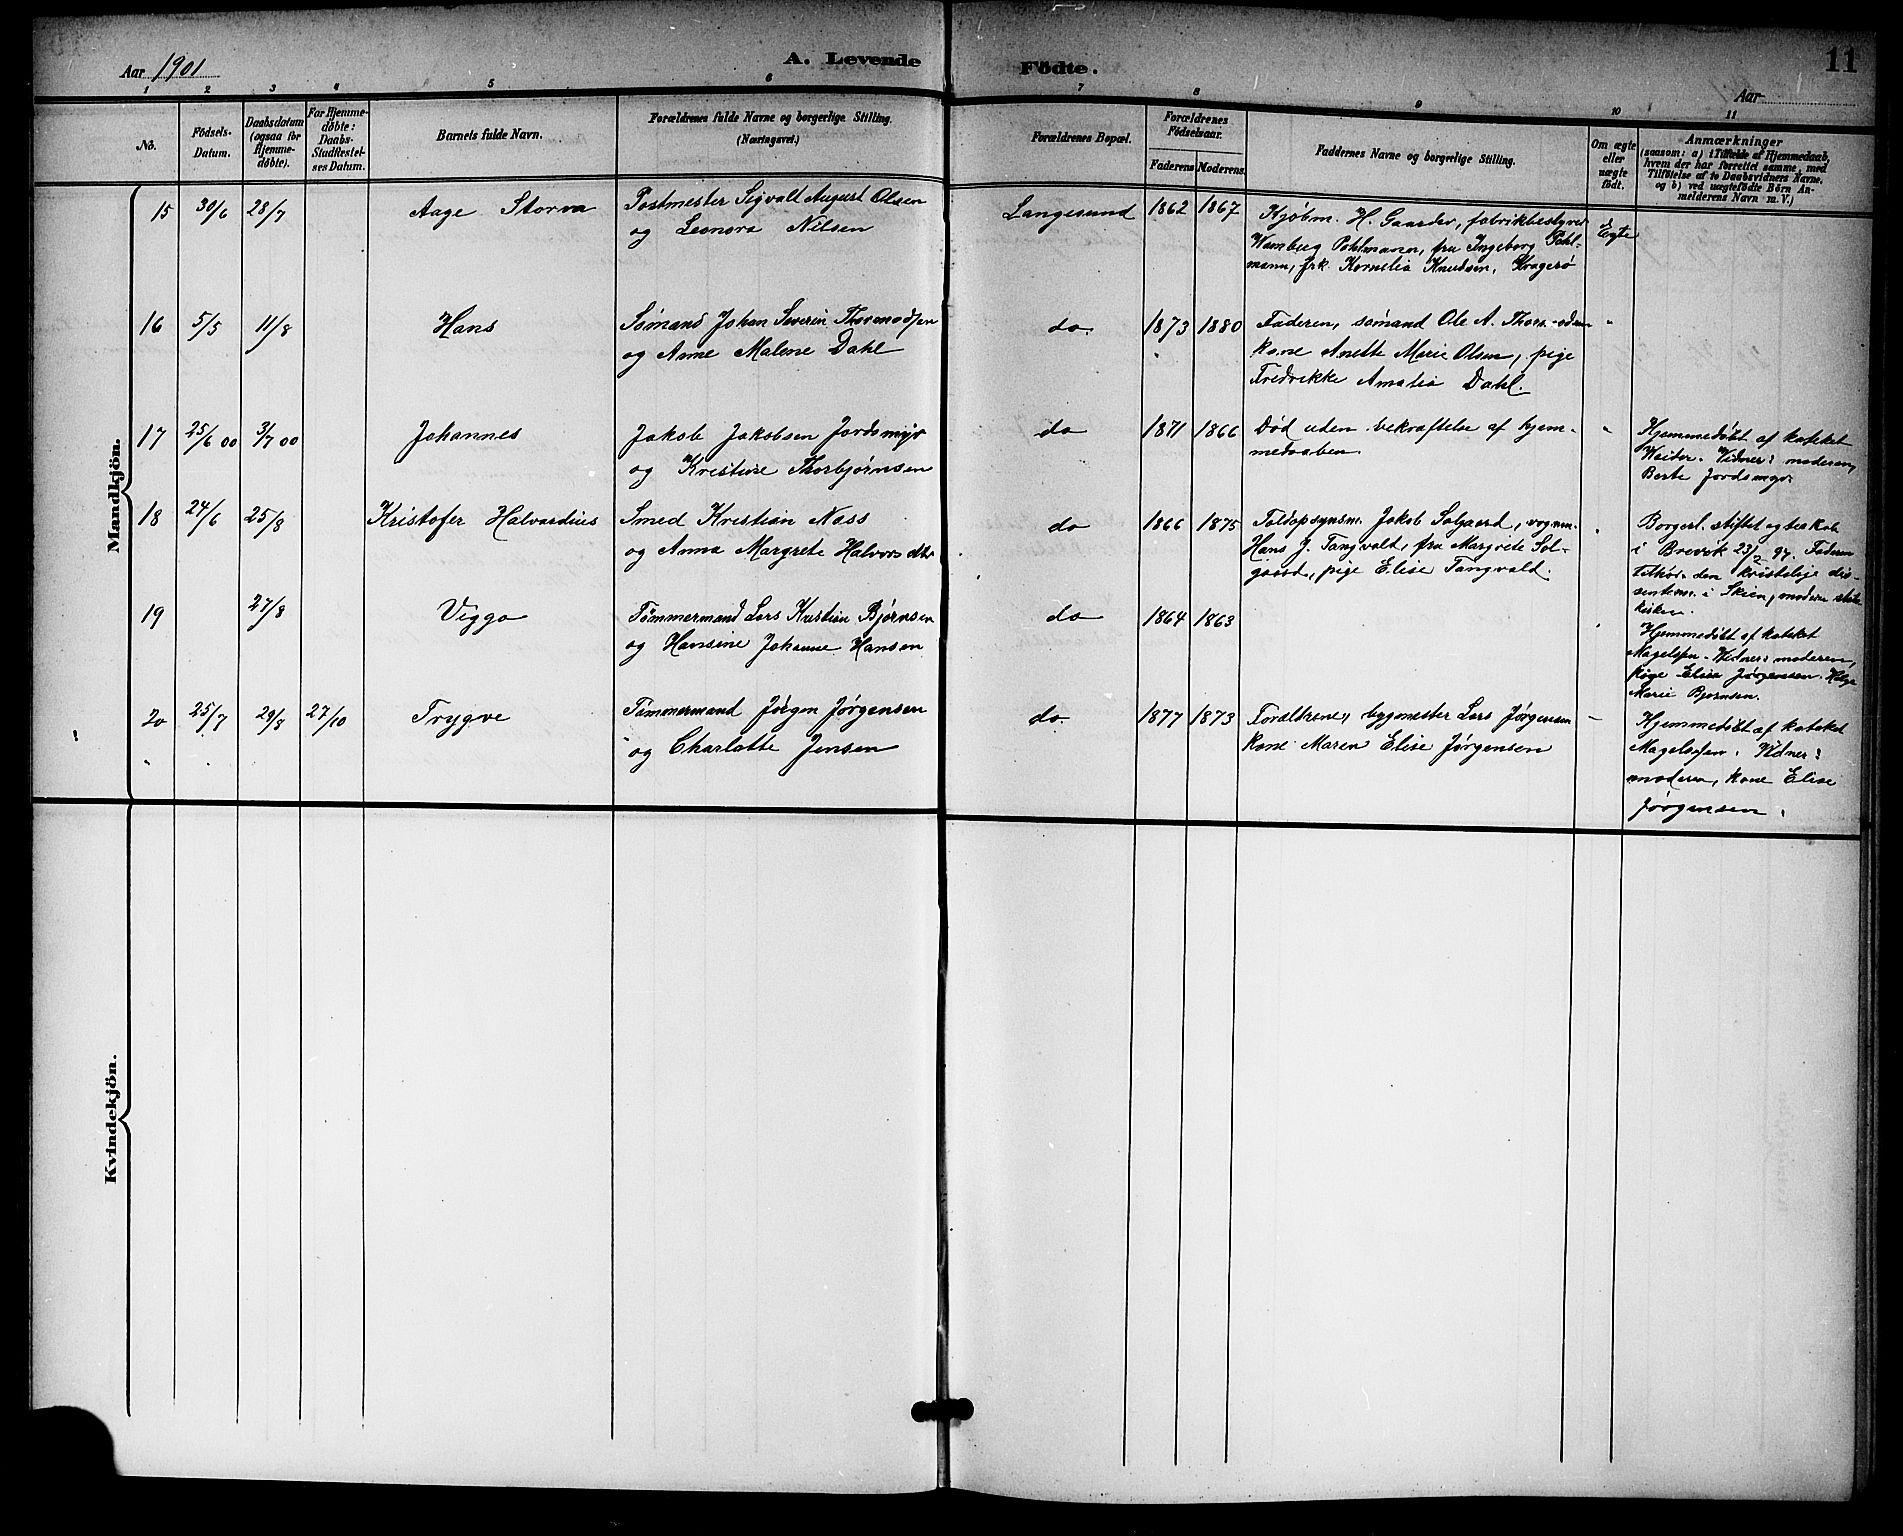 Aar 1901
A. Levende
Födte.
11
Aar
1 2 3 4 5 6 7 8 9 10 11
No.
Födsels-
Datum.
Daabsdatum
(ogsaa for
Hjemme-
döbte).
For Hjemme-
døbte:
Daabs-
Stadfæstel-
ses Datum.
Barnets fulde Navn.
Forældrenes fulde Navne og borgerlige Stilling.
(Næringsvei.)
Forældrenes Bopæl.
Forældrenes
Födselsaar.
Faderens Moderens.
Faddernes Navne og borgerlige Stilling.
Om ægte
eller
uægte
födt.
Anmærkninger
(saasom: a) i Tilfælde af Hjemmedaab,
hvem der har forrettet samme, med
Tilföielse af to Daabsvidners Navne.
og b) ved uægtefödte Börn An-
melderens Navn m. V.)
Mandkjön.
15 30/6 28/7 Aage Storm
Postmester Sigvalt August Olsen
og Leonora Nilsen
Langesund 1862 1867
Kjøbm. H. Gaarder, fabrikbestyrer
Wamberg Pohlmann, fru Ingeborg Pohl-
mann, frk. Kornelia Knudsen, Kragerø
Egte
16 5/5 11/8 Hans
Sømand Johan Severin Thormodsen
og Anne Malene Dahl
do. 1873 1880
Faderen, sømand Ole A.
kone Anette Marie Olsen, pige
Fredrikke Amalia Dahl.
"
17 25/6 00 3/7 00 Johannes
Jakob Jakobsen Jordsmyr
og Kristine Thorbjørnsen
do 1871 1866
Død uden bekræftelse af hjem-
medaaben.
"
Hjemmedøbt af kateket
Vidner: moderen,
Berte Jordsmyr.
18 24/6 25/8 Kristofer Halvardius
Smed Kristian Næss
og Anna Margrete Halvorsdtr
do 1866 1875
Toldopsynsm. Jakob Solgaard, vognm.
Hans J. Tangvald, fru Margrete Sol-
gaard, pige Elise Tangvald.
"
Borgerl. stiftet egteskab
i Brevik 23/2 97. Faderen
tilhør. den kristelige dis-
senterm. i Skien, moderen stats-
kirken.
19 27/8 Viggo
Tømmermand Lars Kristian Bjørnsen
og Hansine Johanne Hansen
do 1864 1863
"
Hjemmedøbt af kateket
Magelssen. Vidner: moderen,
pige Elise Jørgensen. Helga
Marie Bjørnsen.
20 25/7 29/8 27/10 Trygve
Tømmermand Jørgen Jørgensen
og Charlotte Jensen
do. 1877 1873
Forældrene, bygmester Lars Jørgensen
kone Maren Elise Jørgensen
–
Hjemmedøbt af kateket
Magelssen. Vidner:
moderen, kone Elise
Jørgensen.
Kvindekjön.